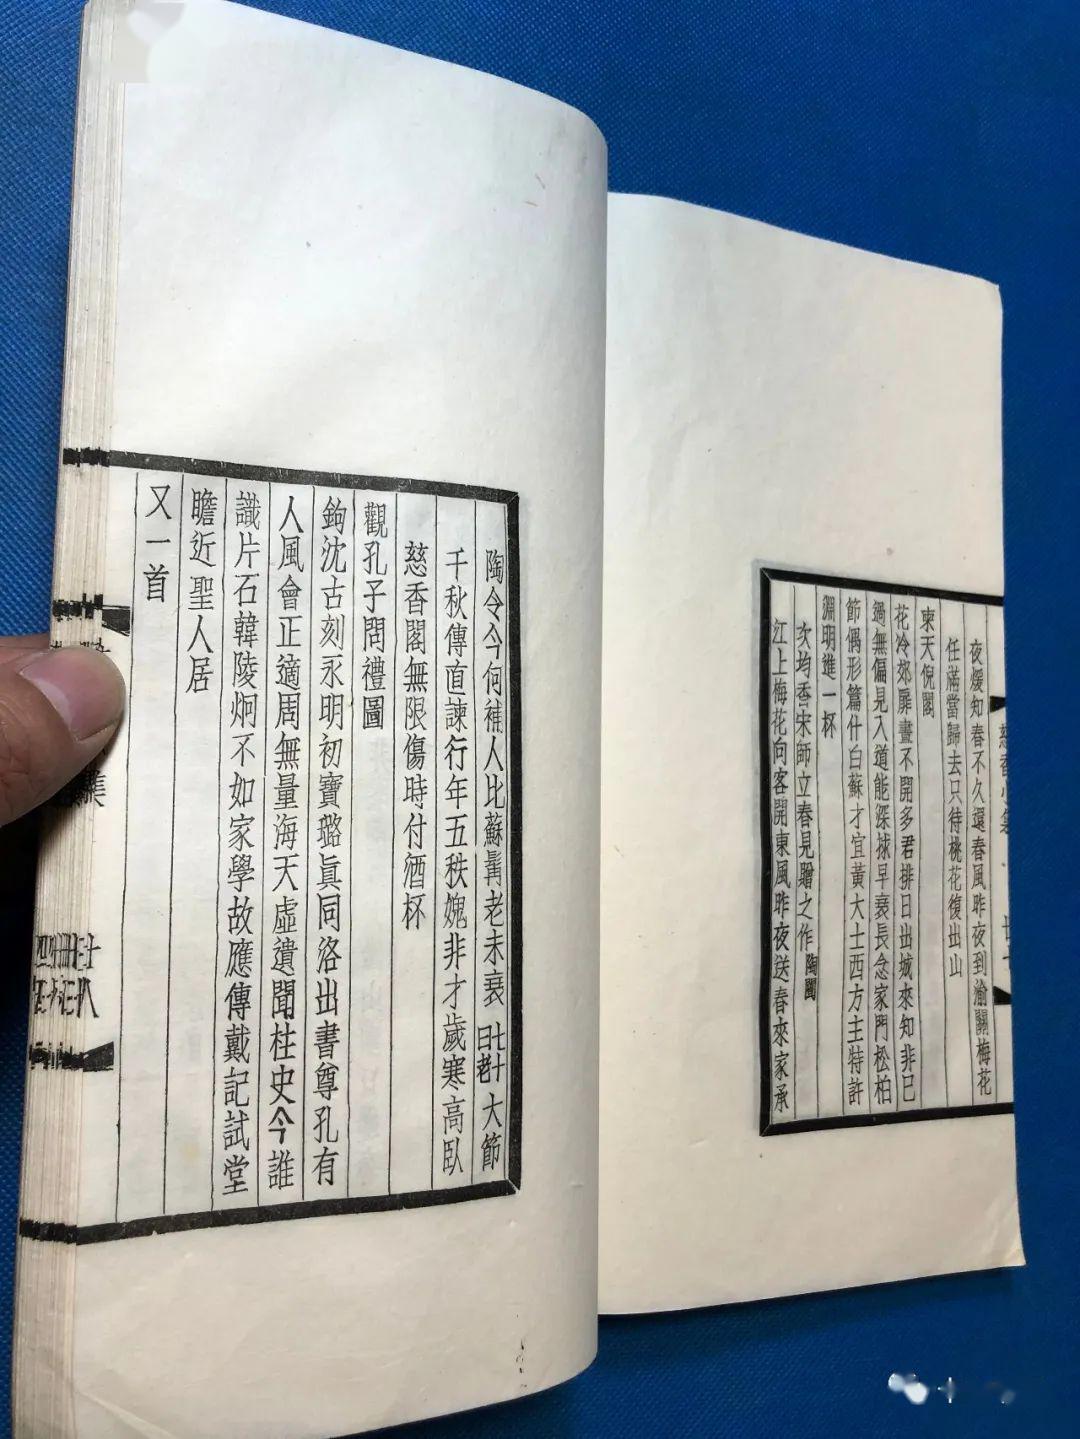 夜煖知春不久還春風昨夜到渝關梅花
任滿當歸去只待桃花復出山
柬天倪閣
花冷郊扉晝不開多君排日出城來知非已
過無偏見入道能深捄早衰長念家門松柏
節偶形篇什白蘇才宜黃大士西方主特許
淵明進一杯
次均香宋師立春見贈之作陶闓
江上梅花向客開東風昨夜送春來家承
陶令今何補人比蘇髯老未衰七十曰老大節
千秋傳直諫行年五秩媿非才歲寒高臥
慈香閣無限傷時付酒杯
觀孔子問禮圖
鉤沈古刻永明初寶璐眞同洛出書尊孔有
人風會正適周無量海天虛遺聞柱史今誰
識片石韓陵炯不如家學故應傳戴記試堂
瞻近聖人居
又一首
慈香小集
集